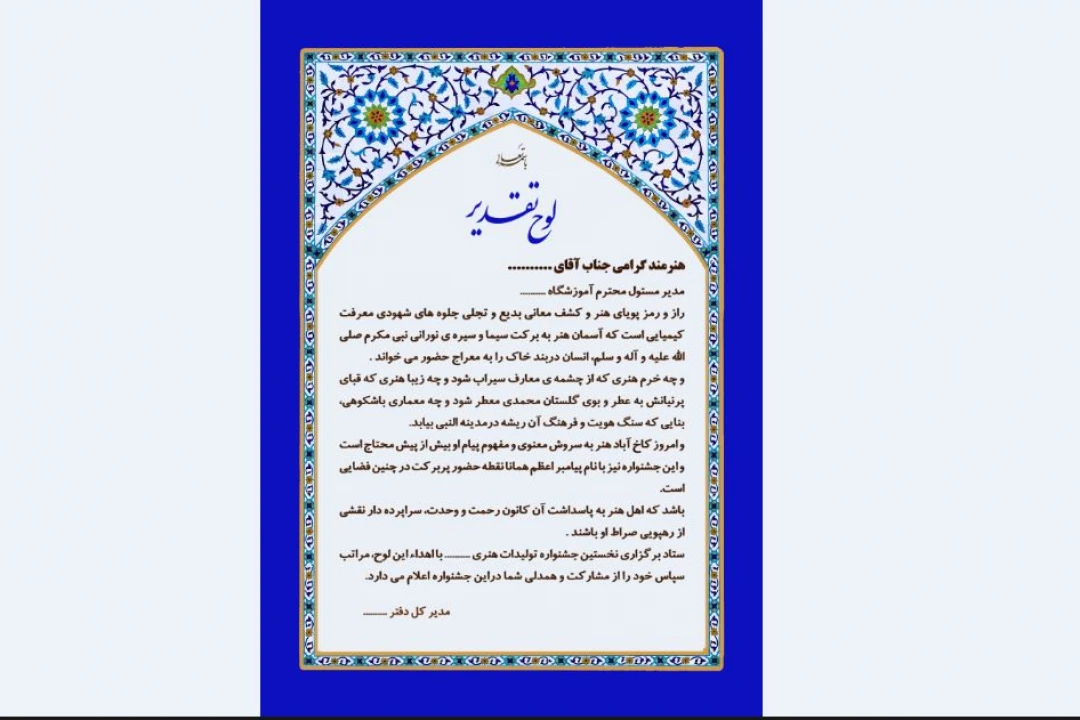 باسمه تعالی
لوح تقدیر
هنرمند گرامی جناب آقای ..........
مدیر مسئول محترم آموزشگاه ..........
راز و رمز پویای هنر و کشف معانی بدیع و تجلی جلوه های شهودی معرفت
کیمیایی است که آسمان هنر به برکت سیما و سیره ی نورانی نبی مکرم صلی
الله علیه و آله و سلم، انسان دربند خاک را به معراج حضور می خواند .
و چه خرم هنری که از چشمه ی معارف سیراب شود و چه زیبا هنری که قبای
پرنیانش به عطر و بوی گلستان محمدی معطر شود و چه معماری باشکوهی،
بنایی که سنگ هویت و فرهنگ آن ریشه درمدینه النبی بیابد.
و امروز کاخ آباد هنر به سروش معنوی و مفهوم پیام او بیش از پیش محتاج است
و این جشنواره نیز با نام پیامبر اعظم همانا نقطه حضور پربرکت در چنین فضایی
است.
باشد که اهل هنر به پاسداشت آن کانون رحمت و وحدت، سراپرده دار نقشی
از رهپویی صراط او باشند .
ستاد برگزاری نخستین جشنواره تولیدات هنری .......... با اهداء این لوح، مراتب
سپاس خود را از مشارکت و همدلی شما دراین جشنواره اعلام می دارد.
مدیر کل دفتر ..........